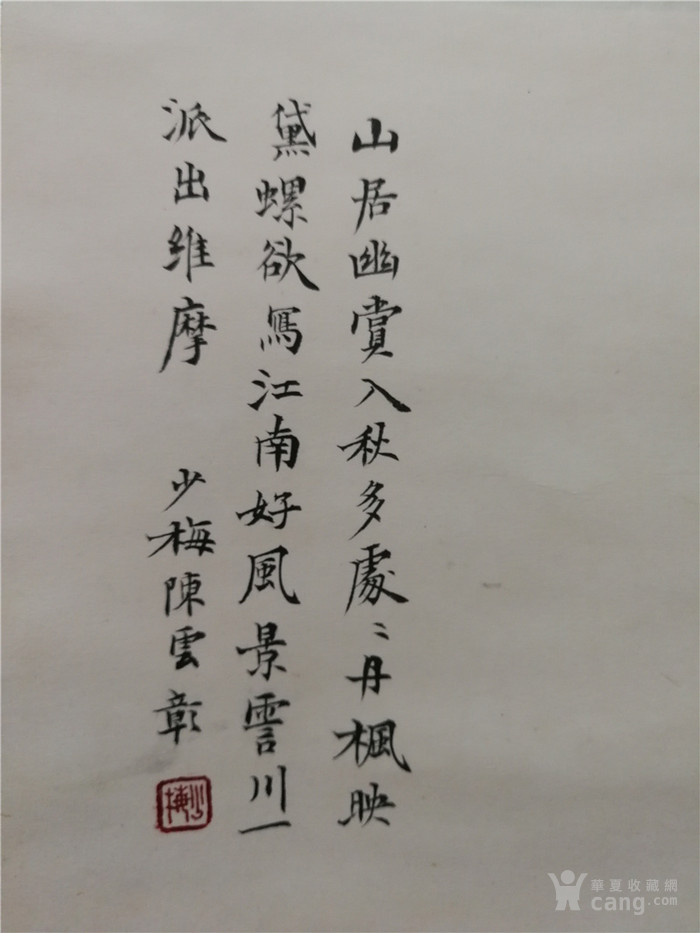 山居幽賞入秋多處〻丹楓映
黛螺欲寫江南好風景霅川一
派出維摩 少梅陳雲彰
少梅
華夏收藏網
cang.com